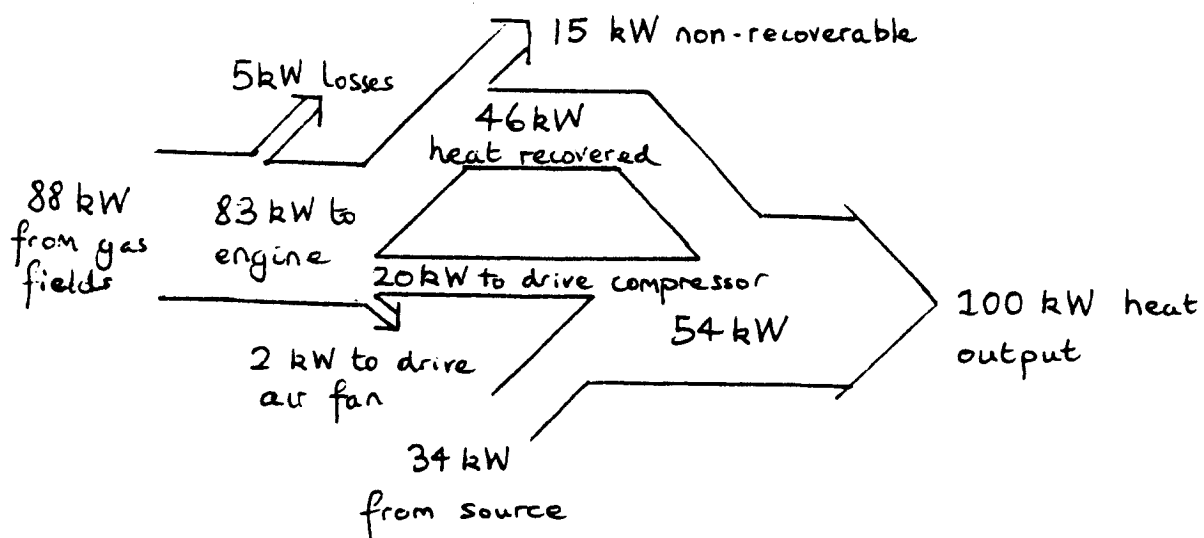 15 kW non-recoverable
5kW losses
46kW
heat recovered
88 kW
from gas
fields
83 kW to
engine
20kW to drive compressor
54 kW
100 kW heat
output
2 kW to drive
air fan
34 kW
from source